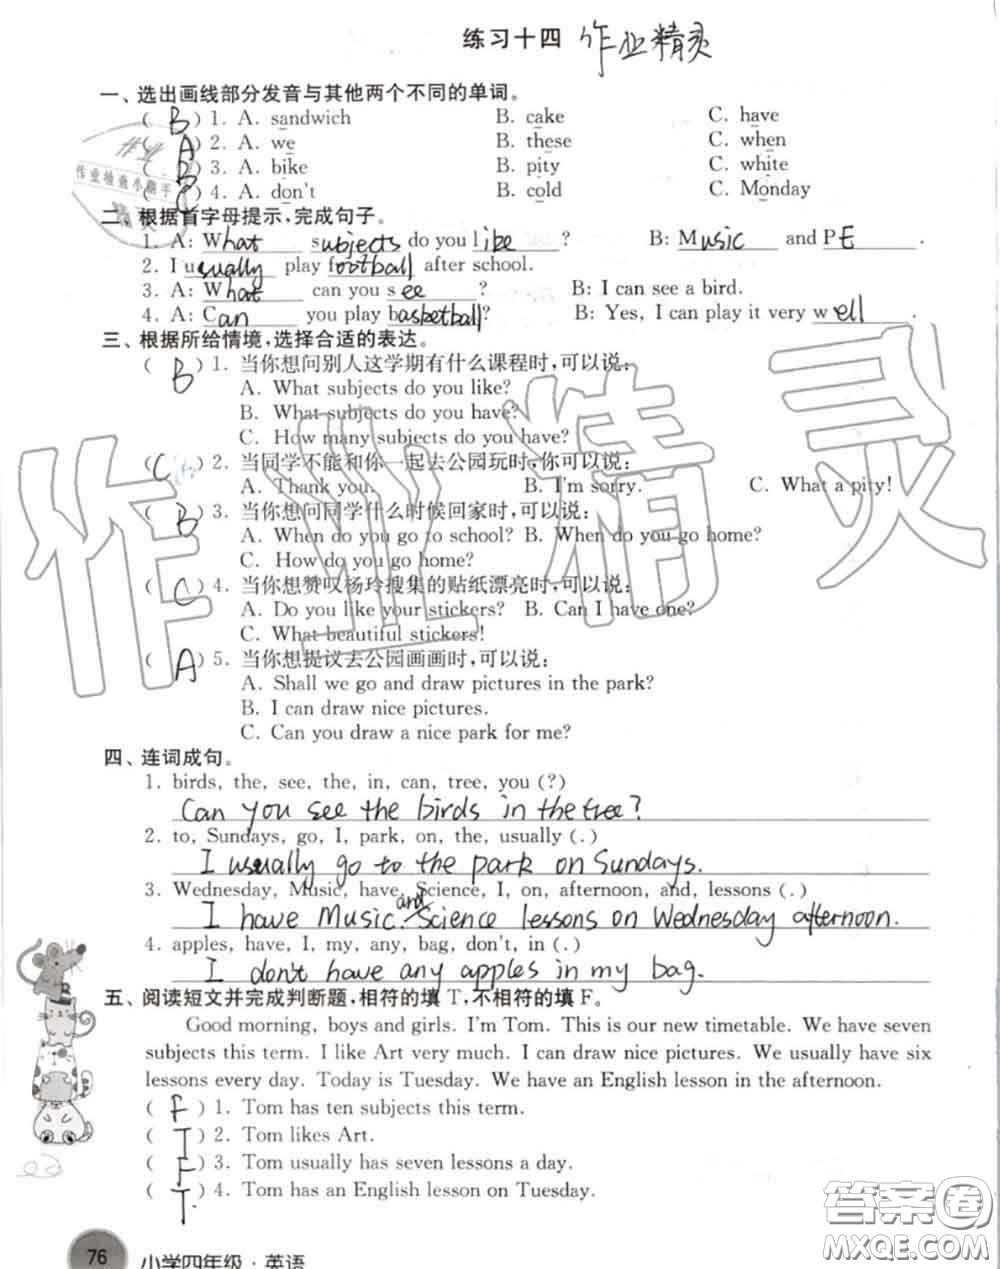 练习十四 作业精灵
一、选出画线部分发音与其他两个不同的单词。
( B ) 1. A. sandwich B. cake C. have
( A ) 2. A. we B. these C. when
( B ) 3. A. bike B. pity C. white
( C ) 4. A. don't B. cold C. Monday
二、根据首字母提示,完成句子。
1. A: What subjects do you like ? B: Music and PE .
2. I usually play football after school.
3. A: What can you see ? B: I can see a bird.
4. A: Can you play basketball? B: Yes, I can play it very well .
三、根据所给情境,选择合适的表达。
( B ) 1. 当你想问别人这学期有什么课程时,可以说:
A. What subjects do you like?
B. What subjects do you have?
C. How many subjects do you have?
( C ) 2. 当同学不能和你一起去公园玩时,你可以说:
A. Thank you. B. I'm sorry. C. What a pity!
( B ) 3. 当你想问同学什么时候回家时,可以说:
A. When do you go to school? B. When do you go home?
C. How do you go home?
( C ) 4. 当你想赞叹杨玲搜集的贴纸漂亮时,可以说:
A. Do you like your stickers? B. Can I have one?
C. What beautiful stickers!
( A ) 5. 当你想提议去公园画画时,可以说:
A. Shall we go and draw pictures in the park?
B. I can draw nice pictures.
C. Can you draw a nice park for me?
四、连词成句。
1. birds, the, see, the, in, can, tree, you (?)
Can you see the birds in the tree?
2. to, Sundays, go, I, park, on, the, usually (.)
I usually go to the park on Sundays.
3. Wednesday, Music, have, Science, I, on, afternoon, and, lessons (.)
I have Music and Science lessons on Wednesday afternoon.
4. apples, have, I, my, any, bag, don't, in (.)
I don't have any apples in my bag.
五、阅读短文并完成判断题,相符的填 T,不相符的填 F。
Good morning, boys and girls. I'm Tom. This is our new timetable. We have seven
subjects this term. I like Art very much. I can draw nice pictures. We usually have six
lessons every day. Today is Tuesday. We have an English lesson in the afternoon.
( F ) 1. Tom has ten subjects this term.
( T ) 2. Tom likes Art.
( F ) 3. Tom usually has seven lessons a day.
( T ) 4. Tom has an English lesson on Tuesday.
76 小学四年级·英语
作业精灵
答案圈
MXQE.COM